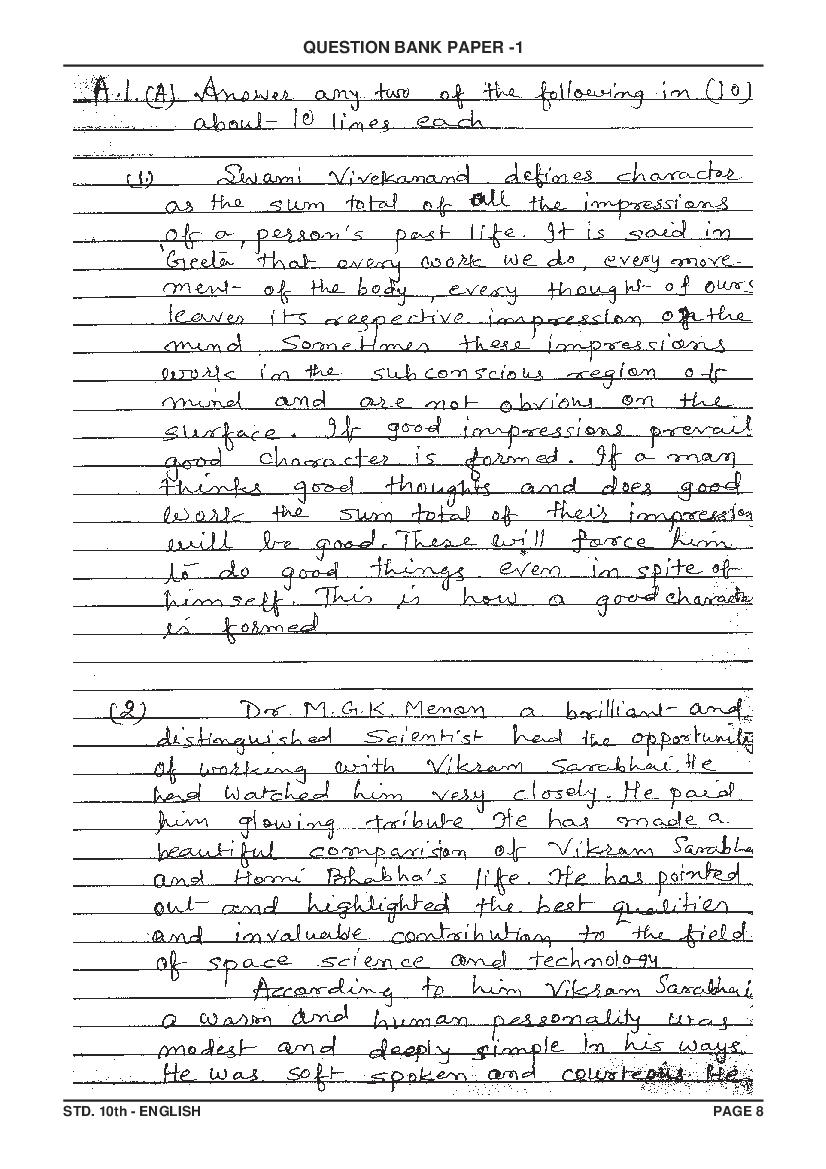 QUESTION BANK PAPER -1
A.1.(A) Answer any two of the following in (10)
about 10 lines each
(1) Swami Vivekanand defines character
as the sum total of all the impressions
of a person's past life. It is said in
'Geeta' that every work we do, every move-
ment of the body, every thought of ours
leaves its respective impression on the
mind. Sometimes these impressions
work in the subconscious region of
mind and are not obvious on the
surface. If good impressions prevail
good character is formed. If a man
thinks good thoughts and does good
work the sum total of their impression
will be good. These will force him
to do good things even in spite of
himself. This is how a good characte
is formed
(2) Dr. M.G.K. Menon a brilliant and
distinguished Scientist had the opportunity
of working with Vikram Sarabhai. He
had watched him very closely. He paid
him glowing tribute. He has made a
beautiful comparision of Vikram Sarabha
and Homi Bhabha's life. He has pointed
out and highlighted the best qualities
and invaluable contribution to the field
of space science and technology
According to him Vikram Sarabhai
a warm and human personality was
modest and deeply simple in his ways.
He was soft spoken and courteous He
STD. 10th - ENGLISH
PAGE 8